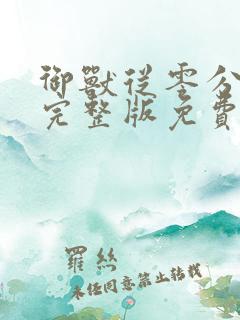 御獸從零分
完整版免費
羅絲
未经同意禁止转载